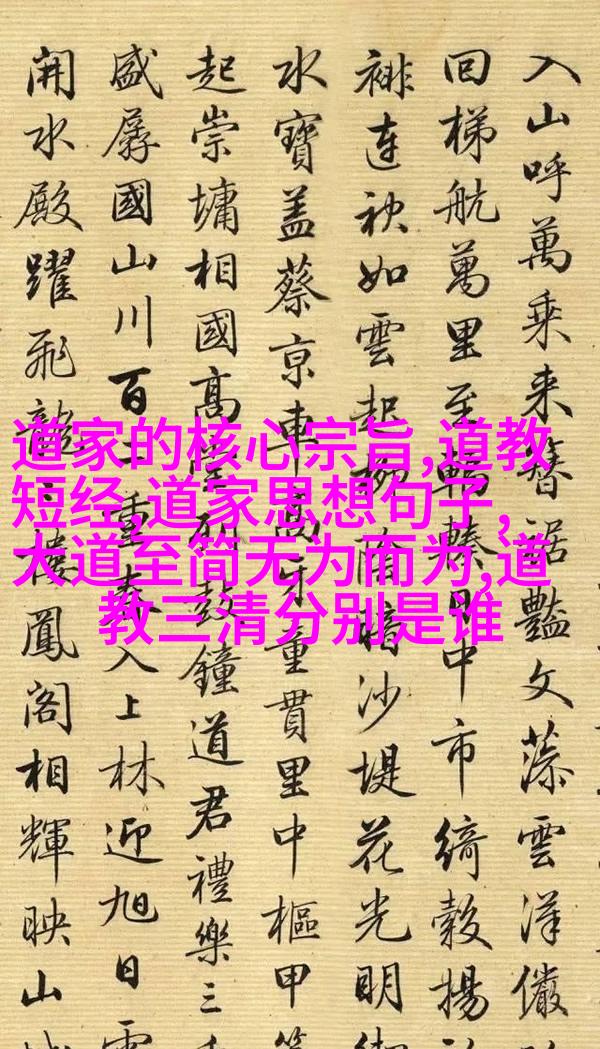 道家的核心宗旨,道教
短经,道家思想句子,
大道至简无为而为,道
教三清分别是谁
入山呼萬乘来簪裾豔文藻雲洋儼
回梯航萬里至日中市綺縠揚
連袂如雲起柳陰沙堤花光明
水寶盖蔡京車高牙重貫里中樞甲
起崇墉相國高列鼓鐘道君禮樂三
盛孱國山川百二重入上林迎旭日雲
開水殿躍飛龍樓鳳閣相輝映山